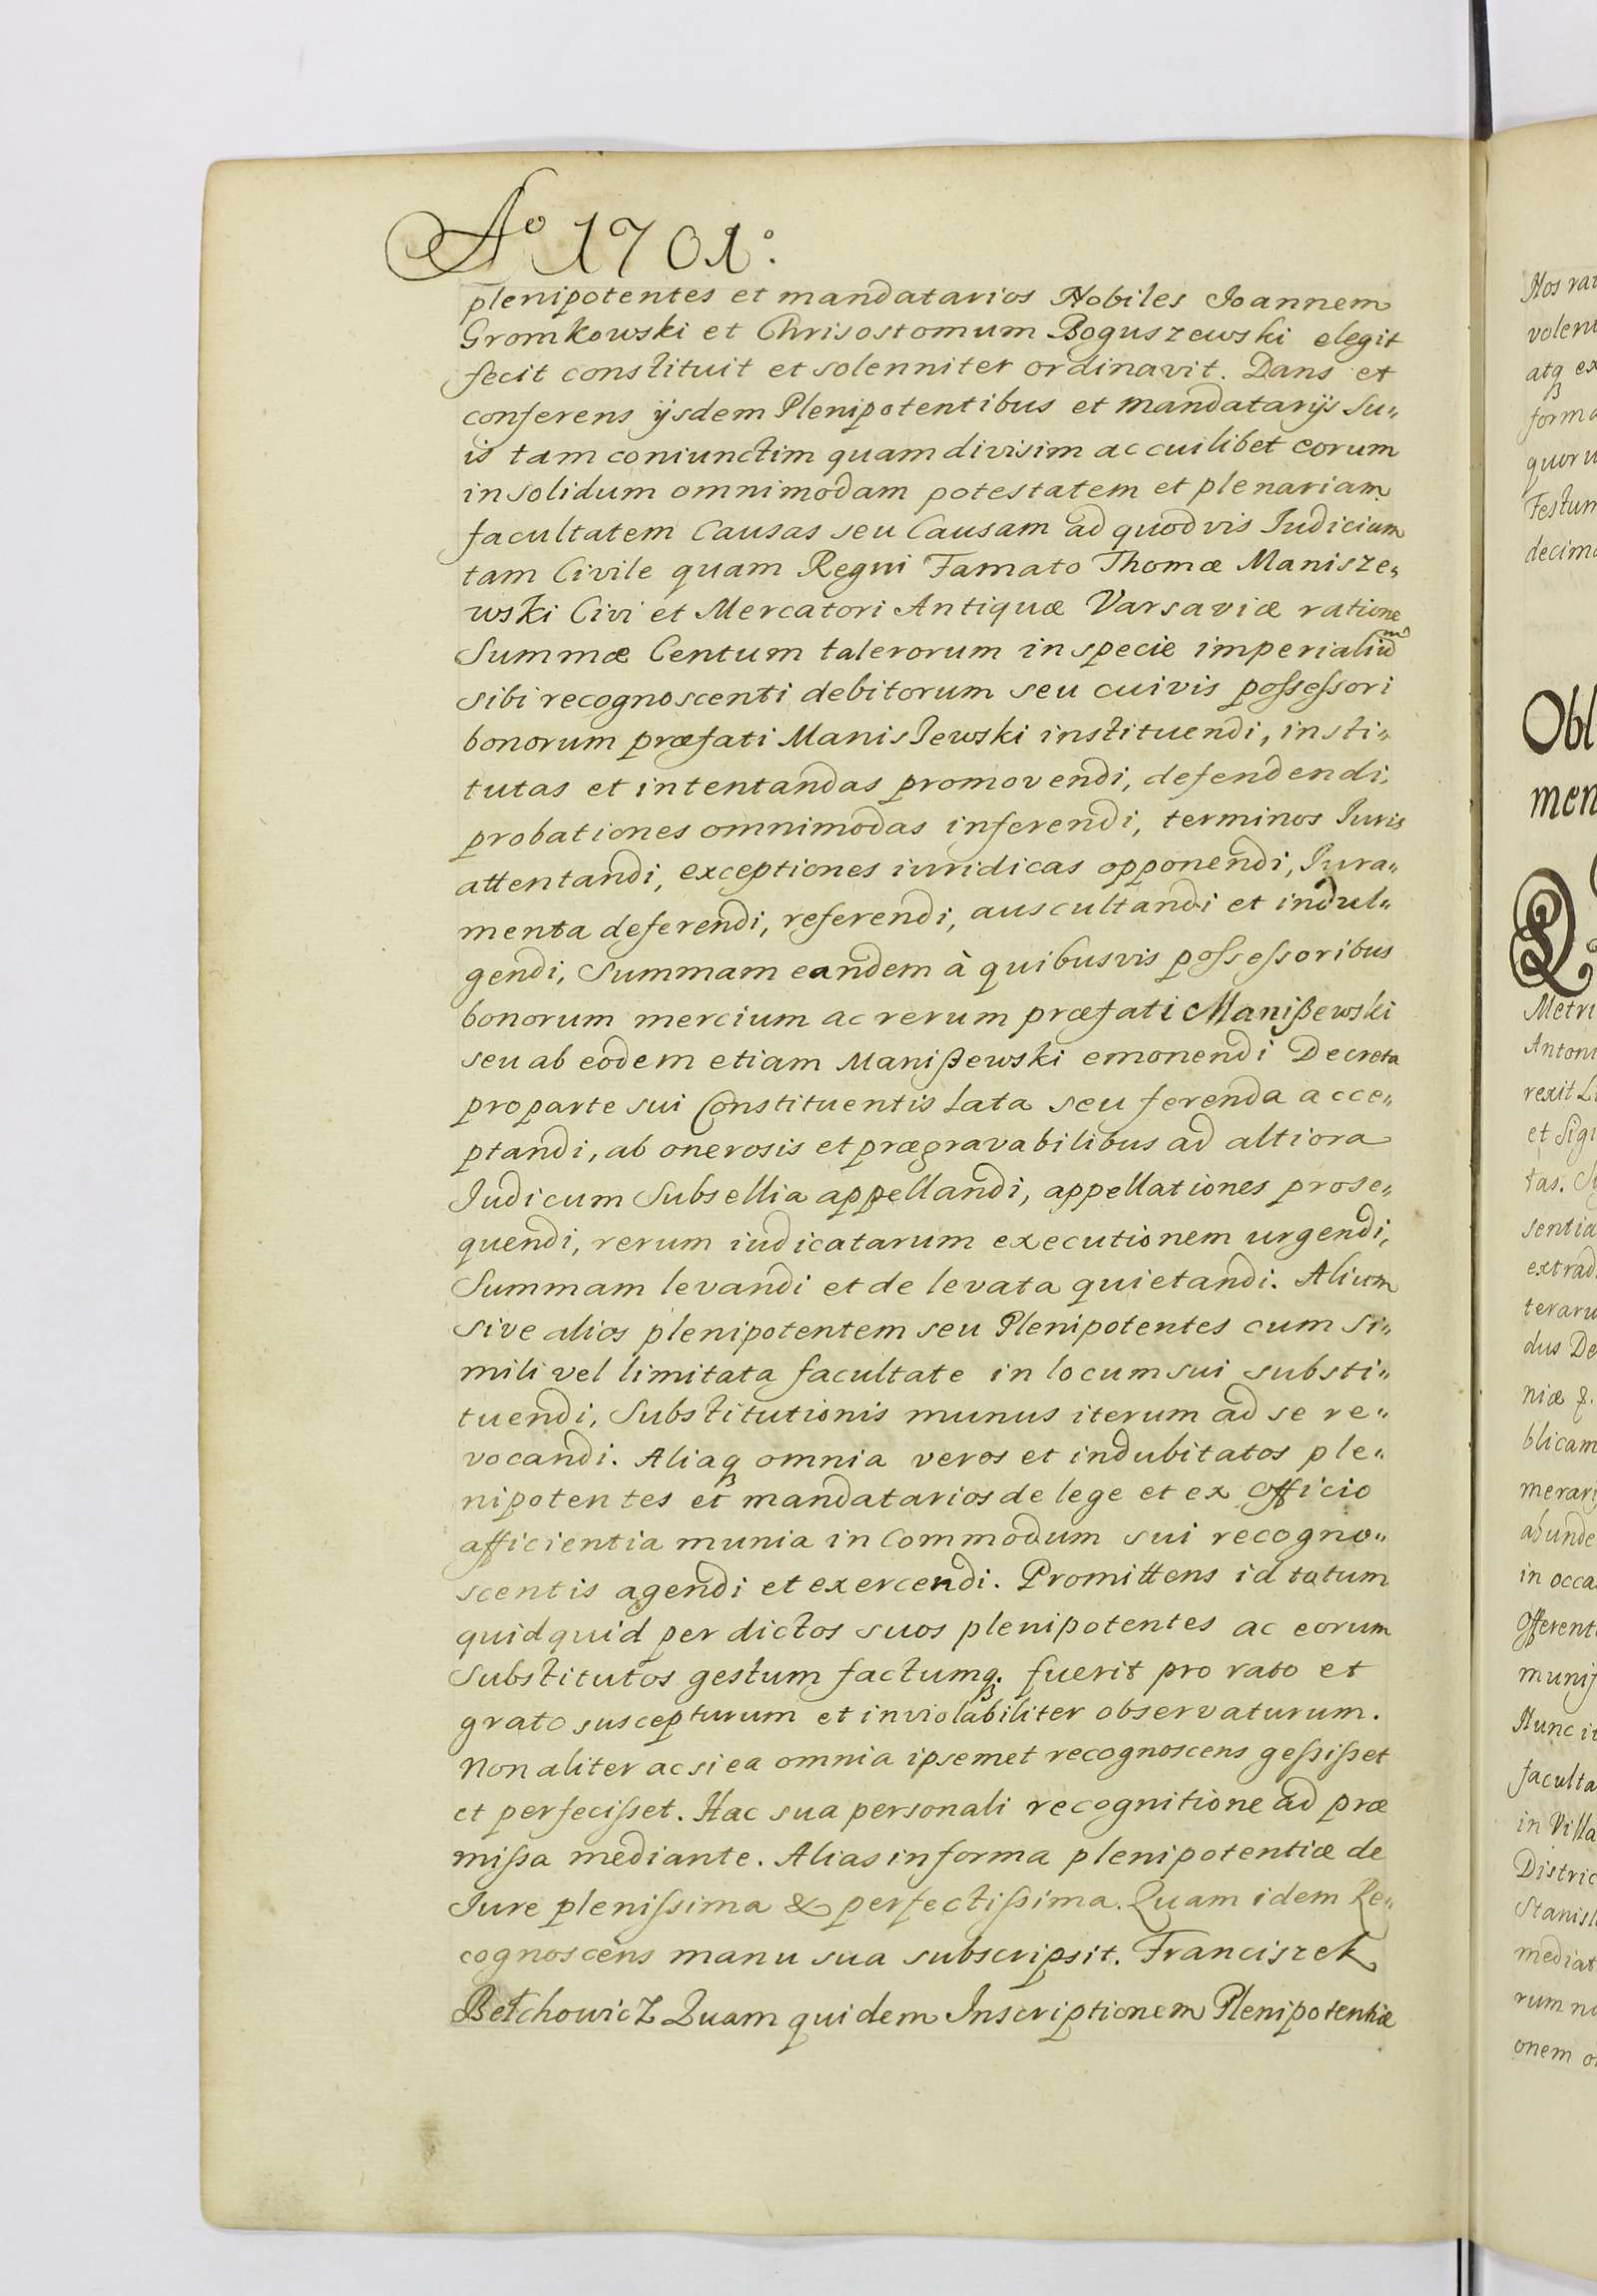 Aº 1701º.
plenipotentes et mandatarios Nobiles Joannem
Gromkowski et Chrisostomum Boguszewski elegit
fecit constituit et solenniter ordinavit. Dans et
conferens ijsdem Plenipotentibus et mandatarijs su„
is tam coniunctim quam divisim ac cuilibet eorum
in solidum omnimodam potestatem et plenariam
facultatem Causas seu Causam ad quodvis Iudicium
tam Civile quam Regni Famato Thomæ Manisze„
wski Civi et Mercatori Antiquæ Varsaviæ ratione
Summæ Centum talerorum in specie imperialium
sibi recognoscenti debitorum seu cuivis possessori
bonorum præfati Maniszewski instituendi, insti„
tutas et intentandas promovendi, defendendi,
probationes omnimodas inferendi, terminos Iuris
attentandi, exceptiones iuridicas opponendi, Iura„
menta deferendi, referendi, auscultandi et indul„
gendi, Summam eandem à quibusvis possessoribus
bonorum mercium ac rerum præfati Manißewski
seu ab eodem etiam Manißewski emonendi Decreta
pro parte sui Constituentis lata seu ferenda acce„
ptandi, ab onerosis et prægravabilibus ad altiora
Iudicum Subsellia appellandi, appellationes prose„
quendi, rerum iudicatarum executionem urgendi,
Summam levandi et de levata quietandi. Alium
sive alios plenipotentem seu Plenipotentes cum si„
mili vel limitata facultate in locum sui substi„
tuendi, Substitutionis munus iterum ad se re„
vocandi. Aliaqꝫ omnia veros et indubitatos ple„
nipotentes et mandatarios de lege et ex Officio
afficientia munia in Commodum sui recogno„
scentis agendi et exercendi. Promittens id totum
quidquid per dictos suos plenipotentes ac eorum
Substitutos gestum factumqꝫ. fuerit pro rato et
grato suscepturum et inviolabiliter observaturum.
Non aliter ac si ea omnia ipsemet recognoscens gessisset
et perfecisset. Hac sua personali recognitione ad præ
missa mediante. Alias in forma plenipotentiæ de
Iure plenissima & perfectissima. Quam idem Re„
cognoscens manu sua subscripsit. Franciszek
Bełchowicz Quam quidem Inscriptionem Plenipotentiæ
Nos
volen
atqꝫ ex
forma
quoru
Festum
decima
Obl
men
Q
Metri
Antoni
rexit Li
et Sigi
tas.
sentia
extrad
teraru
dus De
niæ
blicam
merarij
abunde
in occa
Offerent
munif
Hunc it
faculta
in Villa
Distric
Stanisl
mediat
rum n
onem o